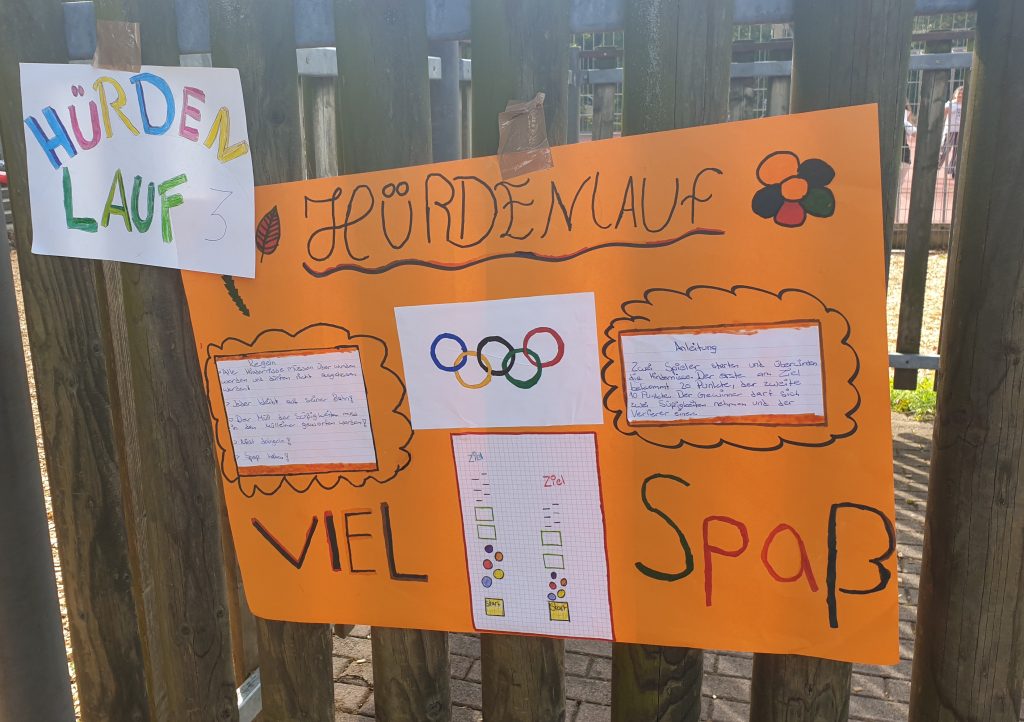 HÜRDEN
LAUF 3
HÜRDENLAUF
Regeln
Alle Hindernisse müssen überwunden
werden und dürfen nicht ausgelassen
werden!
> Jeder bleibt auf seiner Bahn!
> Der Müll der Süßigkeiten muss
in den Mülleimer geworfen werden!
> Nicht drängeln!
> Spaß haben!
Anleitung
Zwei Spieler starten und überwinden
die Hindernisse. Der erste am Ziel
bekommt 20 Punkte, der zweite
10 Punkte. Der Gewinner darf sich
zwei Süßigkeiten nehmen und der
Verlierer einen.
Ziel
Ziel
Start
Start
VIEL
Spaß